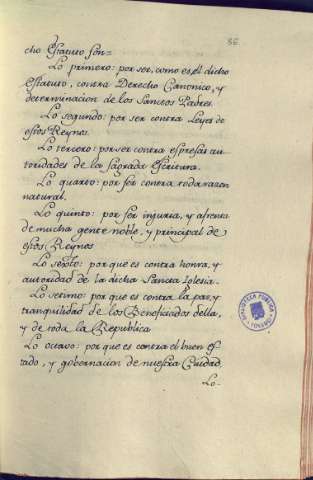 86.
cho Estatuto son=
Lo primero: por ser, como es el dicho
estatuto, contra Derecho Canonico, y
determinacion de los Sanctos Padres.
Lo segundo: por ser contra Leyes de
estos Reynos.
Lo tercero: por ser contra espresas au
toridades de la sagrada Escritura.
Lo quarto: por ser contra toda razon
natural.
Lo quinto: por ser injuria, y afrenta
de mucha gente noble, y principal de
estos Reynos
Lo sexto: porque es contra honra, y
autoridad de la dicha Sancta Iglesia.
Lo setimo: porque es contra la paz, y
tranquilidad de los Beneficiados della,
y de toda la Republica
Lo octavo: porque es contra el buen es
tado, y gobernacion de nuestra Ciudad,
Lo-
BIBLIOTECA PUBLICA
TOLEDO